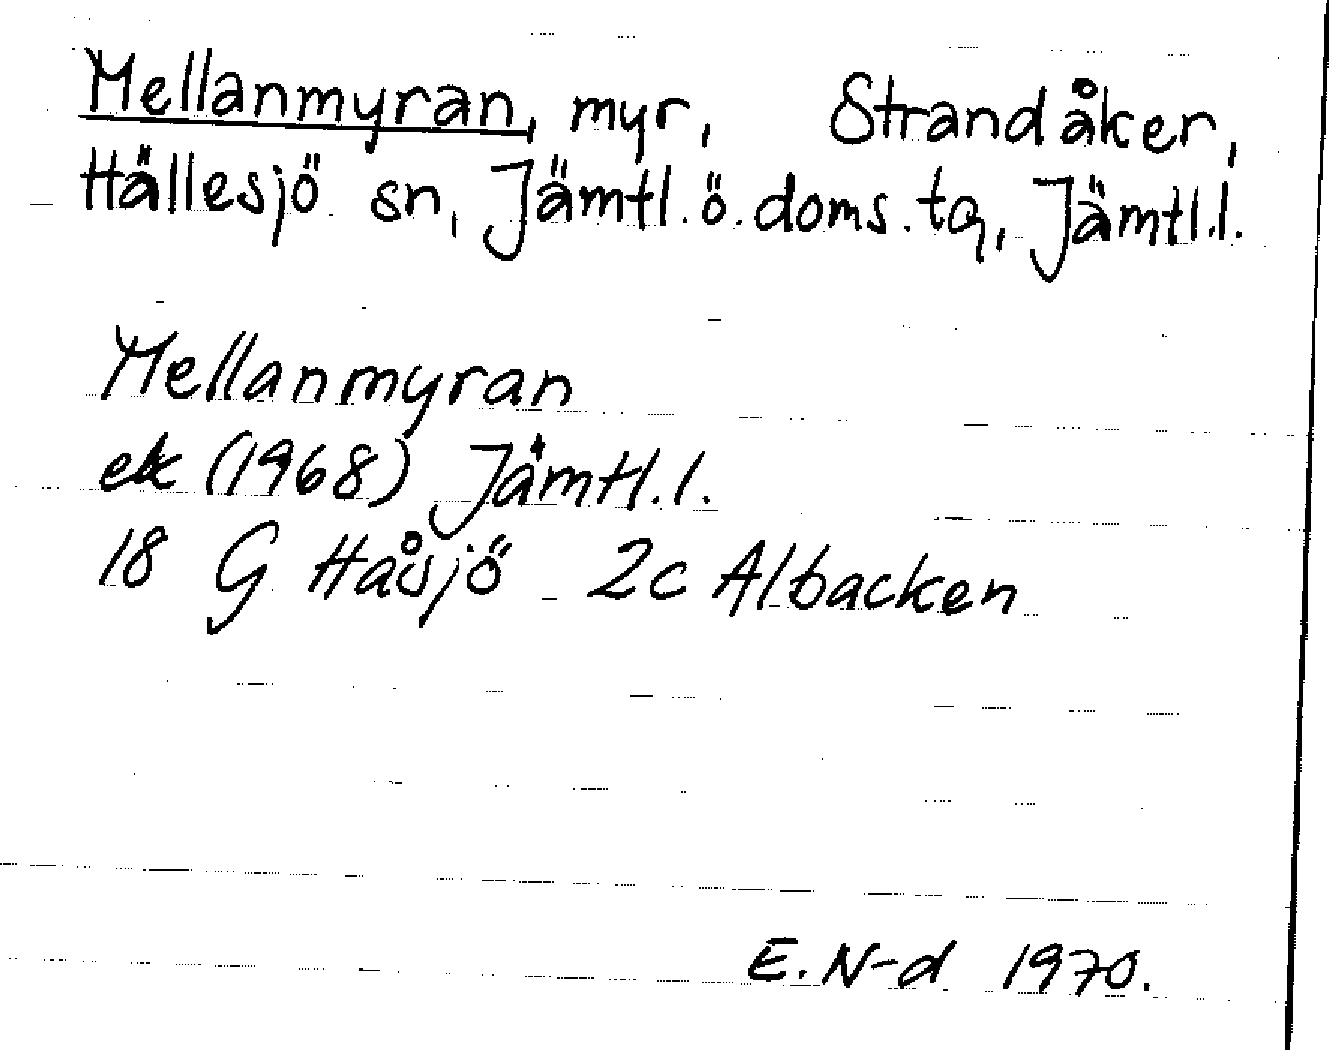 Mellanmyran, myr, Strandåker,
Hällesjö sn, Jämtl.ö.doms.tg, Jämtl.l.
Mellanmyran
ek (1968) Jämtl.l.
18 G Håsjö 2c Albacken
E.N-d 1970.